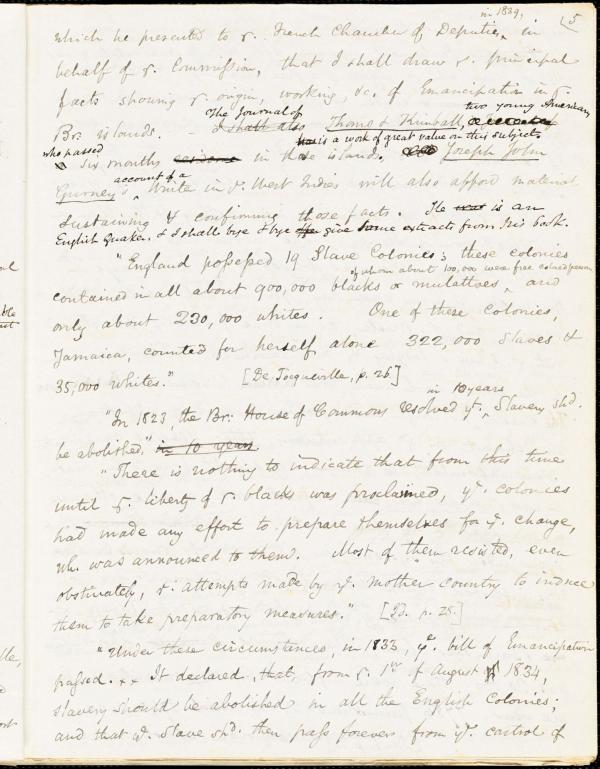 in 1839,
5
which he presented to yᵉ. French Chamber of Deputies, in
behalf of yᵉ. Commission, that I shall draw yᵉ. principal
facts showing yᵉ. origin, working, &c. of Emancipation in yᵉ.
The Journal of
two young American
Br. islands. I shall also Thome & Kimball,
is a work of great value on this subject.
who passed
six months residence in those islands. Joseph John
account of a
Gurney's Winter in yᵉ. West Indies will also afford material
sustaining & confirming those facts. He was is an
English Quaker. & I shall bye & bye give some extracts from his book.
"England possessed 19 Slave Colonies; these colonies
of whom about 100,000 were free colored persons
contained in all about 900,000 blacks or mulattoes, and
only about 230,000 whites. One of these colonies,
Jamaica, counted for herself alone 322,000 slaves &
35,000 whites." [De Tocqueville, p. 26]
in 10 years
"In 1823, the Br: House of Commons resolved yᵗ. Slavery shᵈ.
be abolished," in 10 years.
"There is nothing to indicate that from this time
until yᵉ. liberty of yᵉ. blacks was proclaimed, yᵉ. colonies
had made any effort to prepare themselves for yᵉ. change,
wh. was announced to them. Most of them resisted, even
obstinately, yᵉ. attempts made by yᵉ. mother country to induce
them to take preparatory measures." [Id. p. 28.]
"Under these circumstances, in 1833, yᵉ. bill of Emancipation
passed. x x It declared that, from yᵉ. 1ˢᵗ of August 1834,
slavery should be abolished in all the English Colonies;
and that yᵉ. slave shᵈ. then pass forever from yᵉ. control of